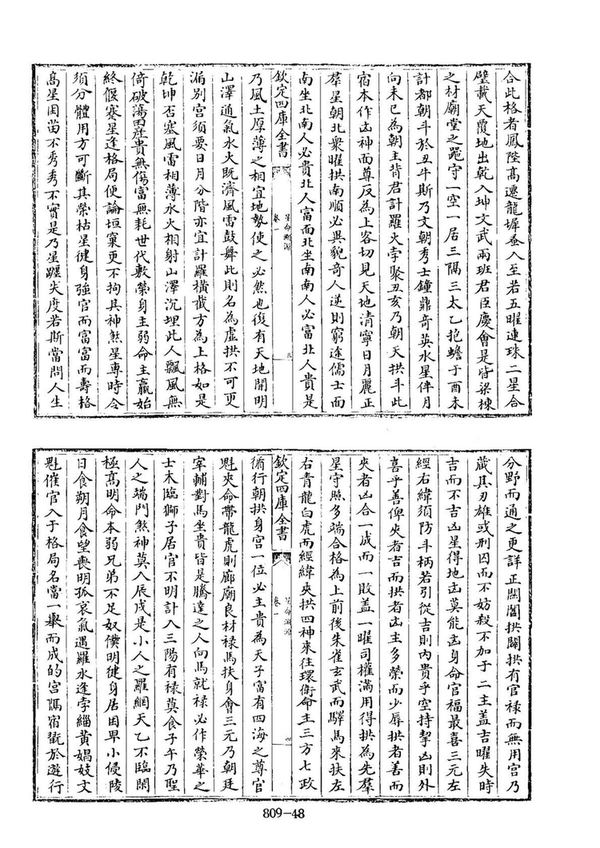 合此格者鳳陛髙遷龍墀叅入至若五曜連珠二星合
璧載天覆地出乾入坤文武兩班君臣慶會是皆梁棟
之材廟堂之器守一空一居三隅三太乙抱蟾于酉未
計都朝斗於丑牛斯乃文朝秀士鐘鼎奇英水星伴月
向未已為朝主背君計羅火孛聚丑亥乃朝天拱斗此
宿本作凶神而尊反為上客切見天地清寧日月麗正
羣星朝北衆曜拱南順必異貌奇人逆則窮途儒士面
南坐北南人必貴北人富面北坐南南人必富北人貴是
欽定四庫全書
卷一
乃風土厚薄之相宜地勢使之必然也復有天地開明
山澤通氣水火既濟風雷鼓舞此則名為虛拱不可更
漏别宫須要日月分階亦宜計羅横截方為上格如是
乾坤否塞風雷相薄水火相射山澤沉埋此人飄風無
倚破蕩田庄貴無傷富無耗世代軟榮身主弱命主羸始
終偃蹇星逢格局便論垣窠更不拘具神煞星專時令
須分體用方可斷其榮枯星健身強官而富富而壽格
髙星困苗不秀秀不實是乃星躔失度若斯當問人生
分野而通之更詳正闗闔拱闗拱有官禄而無用宫乃
藏其刃雄或刑囚而不妨殺不加于二主盖吉曜失時
吉而不吉凶星得地凶莫能凶身命官福最喜三元左
經右緯須防斗柄若引從吉則内貴乎空持挈凶則外
喜乎善俾夾者吉而拱者凶主多榮而少辱拱者善而
夾者凶合一成而一敗盖一曜司權滿用得拱為先羣
星守照多端合格為上前後朱雀玄武而驛馬來扶左
右青龍白虎而經緯夾拱四神來往環衛命主三方七政
欽定四庫全書
卷一
循行朝拱身宫一位必主貴為天子富有四海之尊官
魁夾命帶龍虎則廊廟良材禄馬扶身㑹三元乃朝廷
宰輔對馬坐貴皆是騰達之人向馬就禄必作榮華之
士木臨獅子居官不明計入三陽有禄莫食子午乃聖
人之端門煞神莫入辰戌是小人之羅網天乙不臨闗
極髙明命本弱兄弟不足奴僕明健身居因卑小侵陵
日食朔月食望喪明孤哀氣遇羅水逢孛緇黄娼妓文
魁催官入于格局名當一舉而成的宫隅宿戰於遊行
809-48